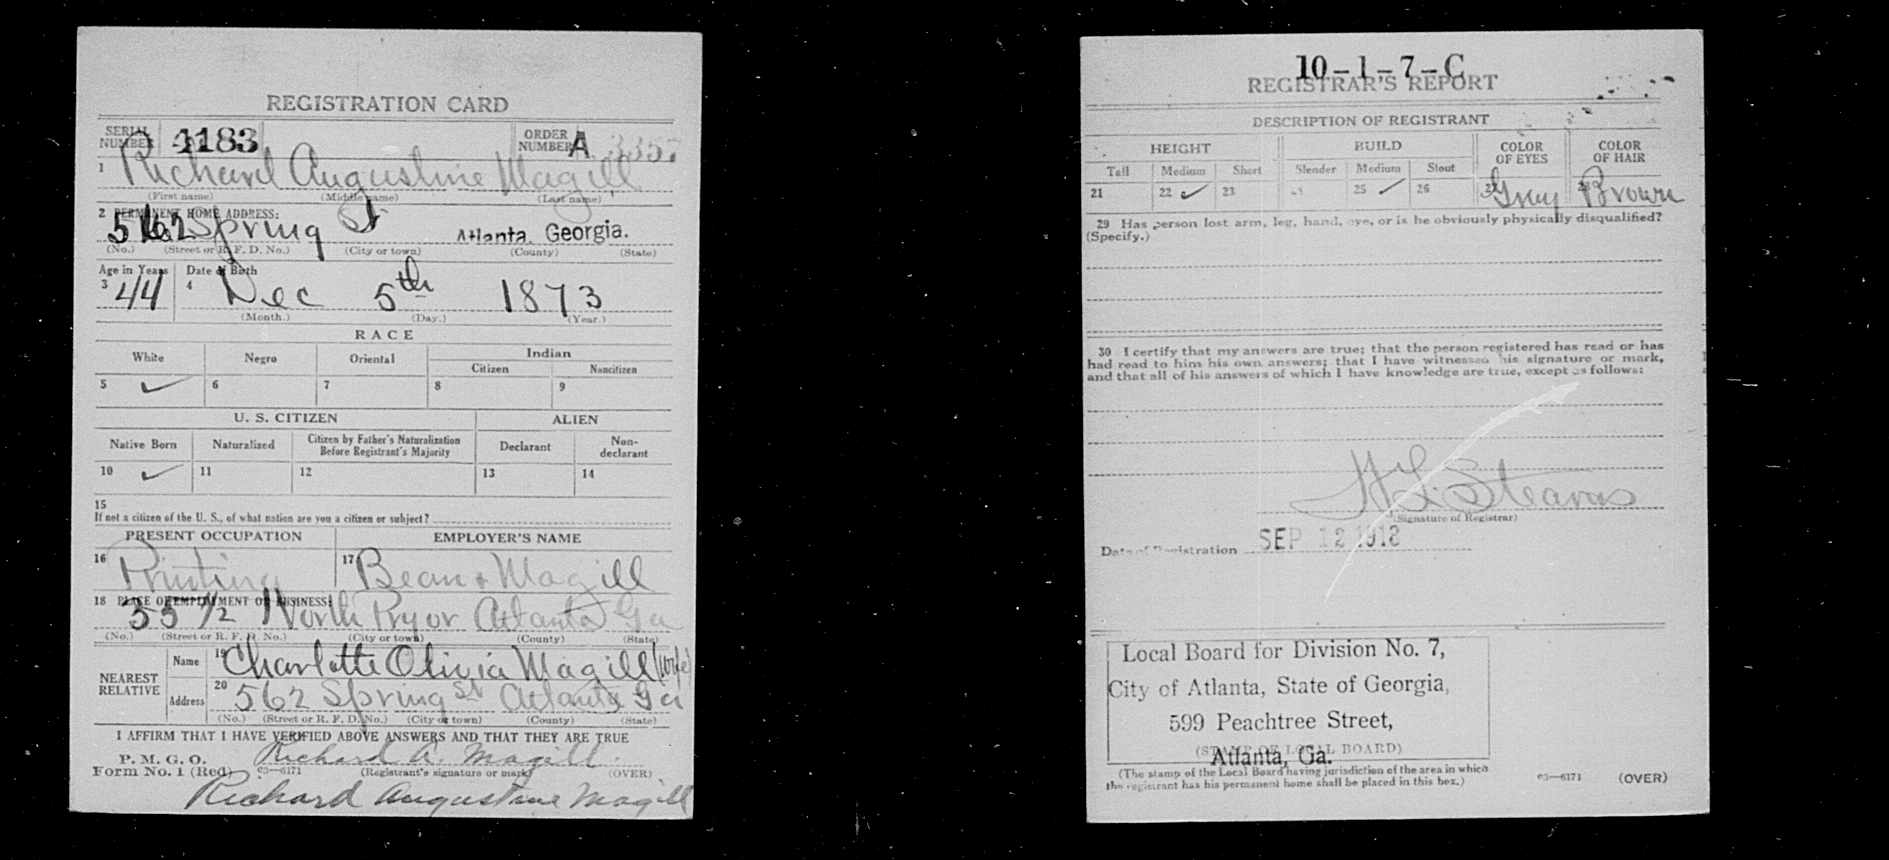 REGISTRATION CARD
SERIAL NUMBER 4183 ORDER NUMBER A 3357
1 Richard Augustine Magill
(First name) (Middle name) (Last name)
2 PERMANENT HOME ADDRESS:
562 Spring St Atlanta, Georgia.
(No.) (Street or R. F. D. No.) (City or town) (County) (State)
Age in Years Date of Birth
3 44 4 Dec 5th 1873
(Month.) (Day.) (Year.)
RACE
White Negro Oriental Indian
Citizen Noncitizen
5 ✓ 6 7 8 9
U. S. CITIZEN ALIEN
Native Born Naturalized Citizen by Father's Naturalization Before Registrant's Majority Declarant Non-declarant
10 ✓ 11 12 13 14
15
If not a citizen of the U. S., of what nation are you a citizen or subject?
PRESENT OCCUPATION EMPLOYER'S NAME
16 Printing 17 Bean & Magill
18 PLACE OF EMPLOYMENT OR BUSINESS:
35 1/2 North Pryor Atlanta Ga
(No.) (Street or R. F. D. No.) (City or town) (County) (State)
NEAREST RELATIVE
Name 19 Charlotte Olivia Magill (wife)
Address 20 562 Spring St Atlanta Ga
(No.) (Street or R. F. D. No.) (City or town) (County) (State)
I AFFIRM THAT I HAVE VERIFIED ABOVE ANSWERS AND THAT THEY ARE TRUE
P. M. G. O.
Form No. 1 (Red) 03—6171 Richard A. Magill
(Registrant's signature or mark) (OVER)
Richard Augustine Magill
10-1-7-C
REGISTRAR'S REPORT
DESCRIPTION OF REGISTRANT
HEIGHT BUILD COLOR OF EYES COLOR OF HAIR
Tall Medium Short Slender Medium Stout
21 22 ✓ 23 24 25 ✓ 26 27 Grey 28 Brown
29 Has person lost arm, leg, hand, eye, or is he obviously physically disqualified?
(Specify.)
30 I certify that my answers are true; that the person registered has read or has
had read to him his own answers; that I have witnessed his signature or mark,
and that all of his answers of which I have knowledge are true, except as follows:
H. L. Stearns
(Signature of Registrar)
Date of Registration SEP 12 1918
Local Board for Division No. 7,
City of Atlanta, State of Georgia,
599 Peachtree Street,
(STAMP OF LOCAL BOARD)
Atlanta, Ga.
(The stamp of the Local Board having jurisdiction of the area in which
the registrant has his permanent home shall be placed in this box.)
03—6171 (OVER)